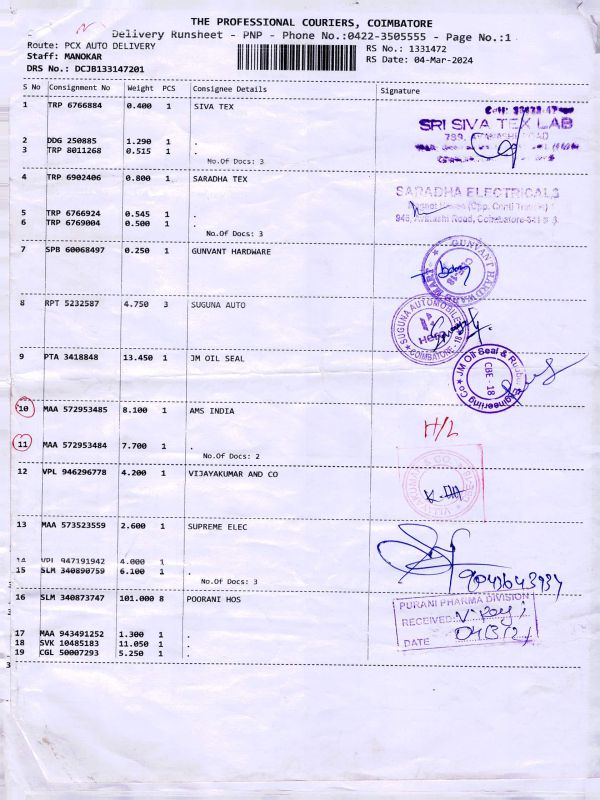 THE PROFESSIONAL COURIERS, COIMBATORE
Delivery Runsheet - PNP - Phone No.:0422-3505555 - Page No.:1
Route: PCX AUTO DELIVERY
RS No.: 1331472
Staff: MANOKAR
RS Date: 04-Mar-2024
DRS No.: DCJB133147201
S No Consignment No Weight PCS Consignee Details Signature
1 TRP 6766884 0.400 1 SIVA TEX
SRI SIVA TEX LAB
2 DDG 250885 1.290 1 .
3 TRP 8011268 0.515 1 .
No.Of Docs: 3
4 TRP 6902406 0.800 1 SARADHA TEX
SARADHA ELECTRICALS
5 TRP 6766924 0.545 1 .
6 TRP 6769004 0.500 1 .
No.Of Docs: 3
7 SPB 60068497 0.250 1 GUNVANT HARDWARE
GUNVANT HARDWARE MART
8 RPT 5232587 4.750 3 SUGUNA AUTO
SUGUNA AUTOMOBILES
Hero
COIMBATORE - 18
9 PTA 3418848 13.450 1 JM OIL SEAL
JM Oil Seal & Rubber Engineering Co
CBE - 18
10 MAA 572953485 8.100 1 AMS INDIA
H/L
11 MAA 572953484 7.700 1 .
No.Of Docs: 2
12 VPL 946296778 4.200 1 VIJAYAKUMAR AND CO
13 MAA 573523559 2.600 1 SUPREME ELEC
14 VPL 947191942 4.000 1 .
15 SLM 340890759 6.100 1 .
No.Of Docs: 3
16 SLM 340873747 101.000 8 POORANI HOS
PURANI PHARMA DIVISION
RECEIVED
DATE
17 MAA 943491252 1.300 1 .
18 SVK 10485183 11.050 1 .
19 CGL 50007293 5.250 1 .